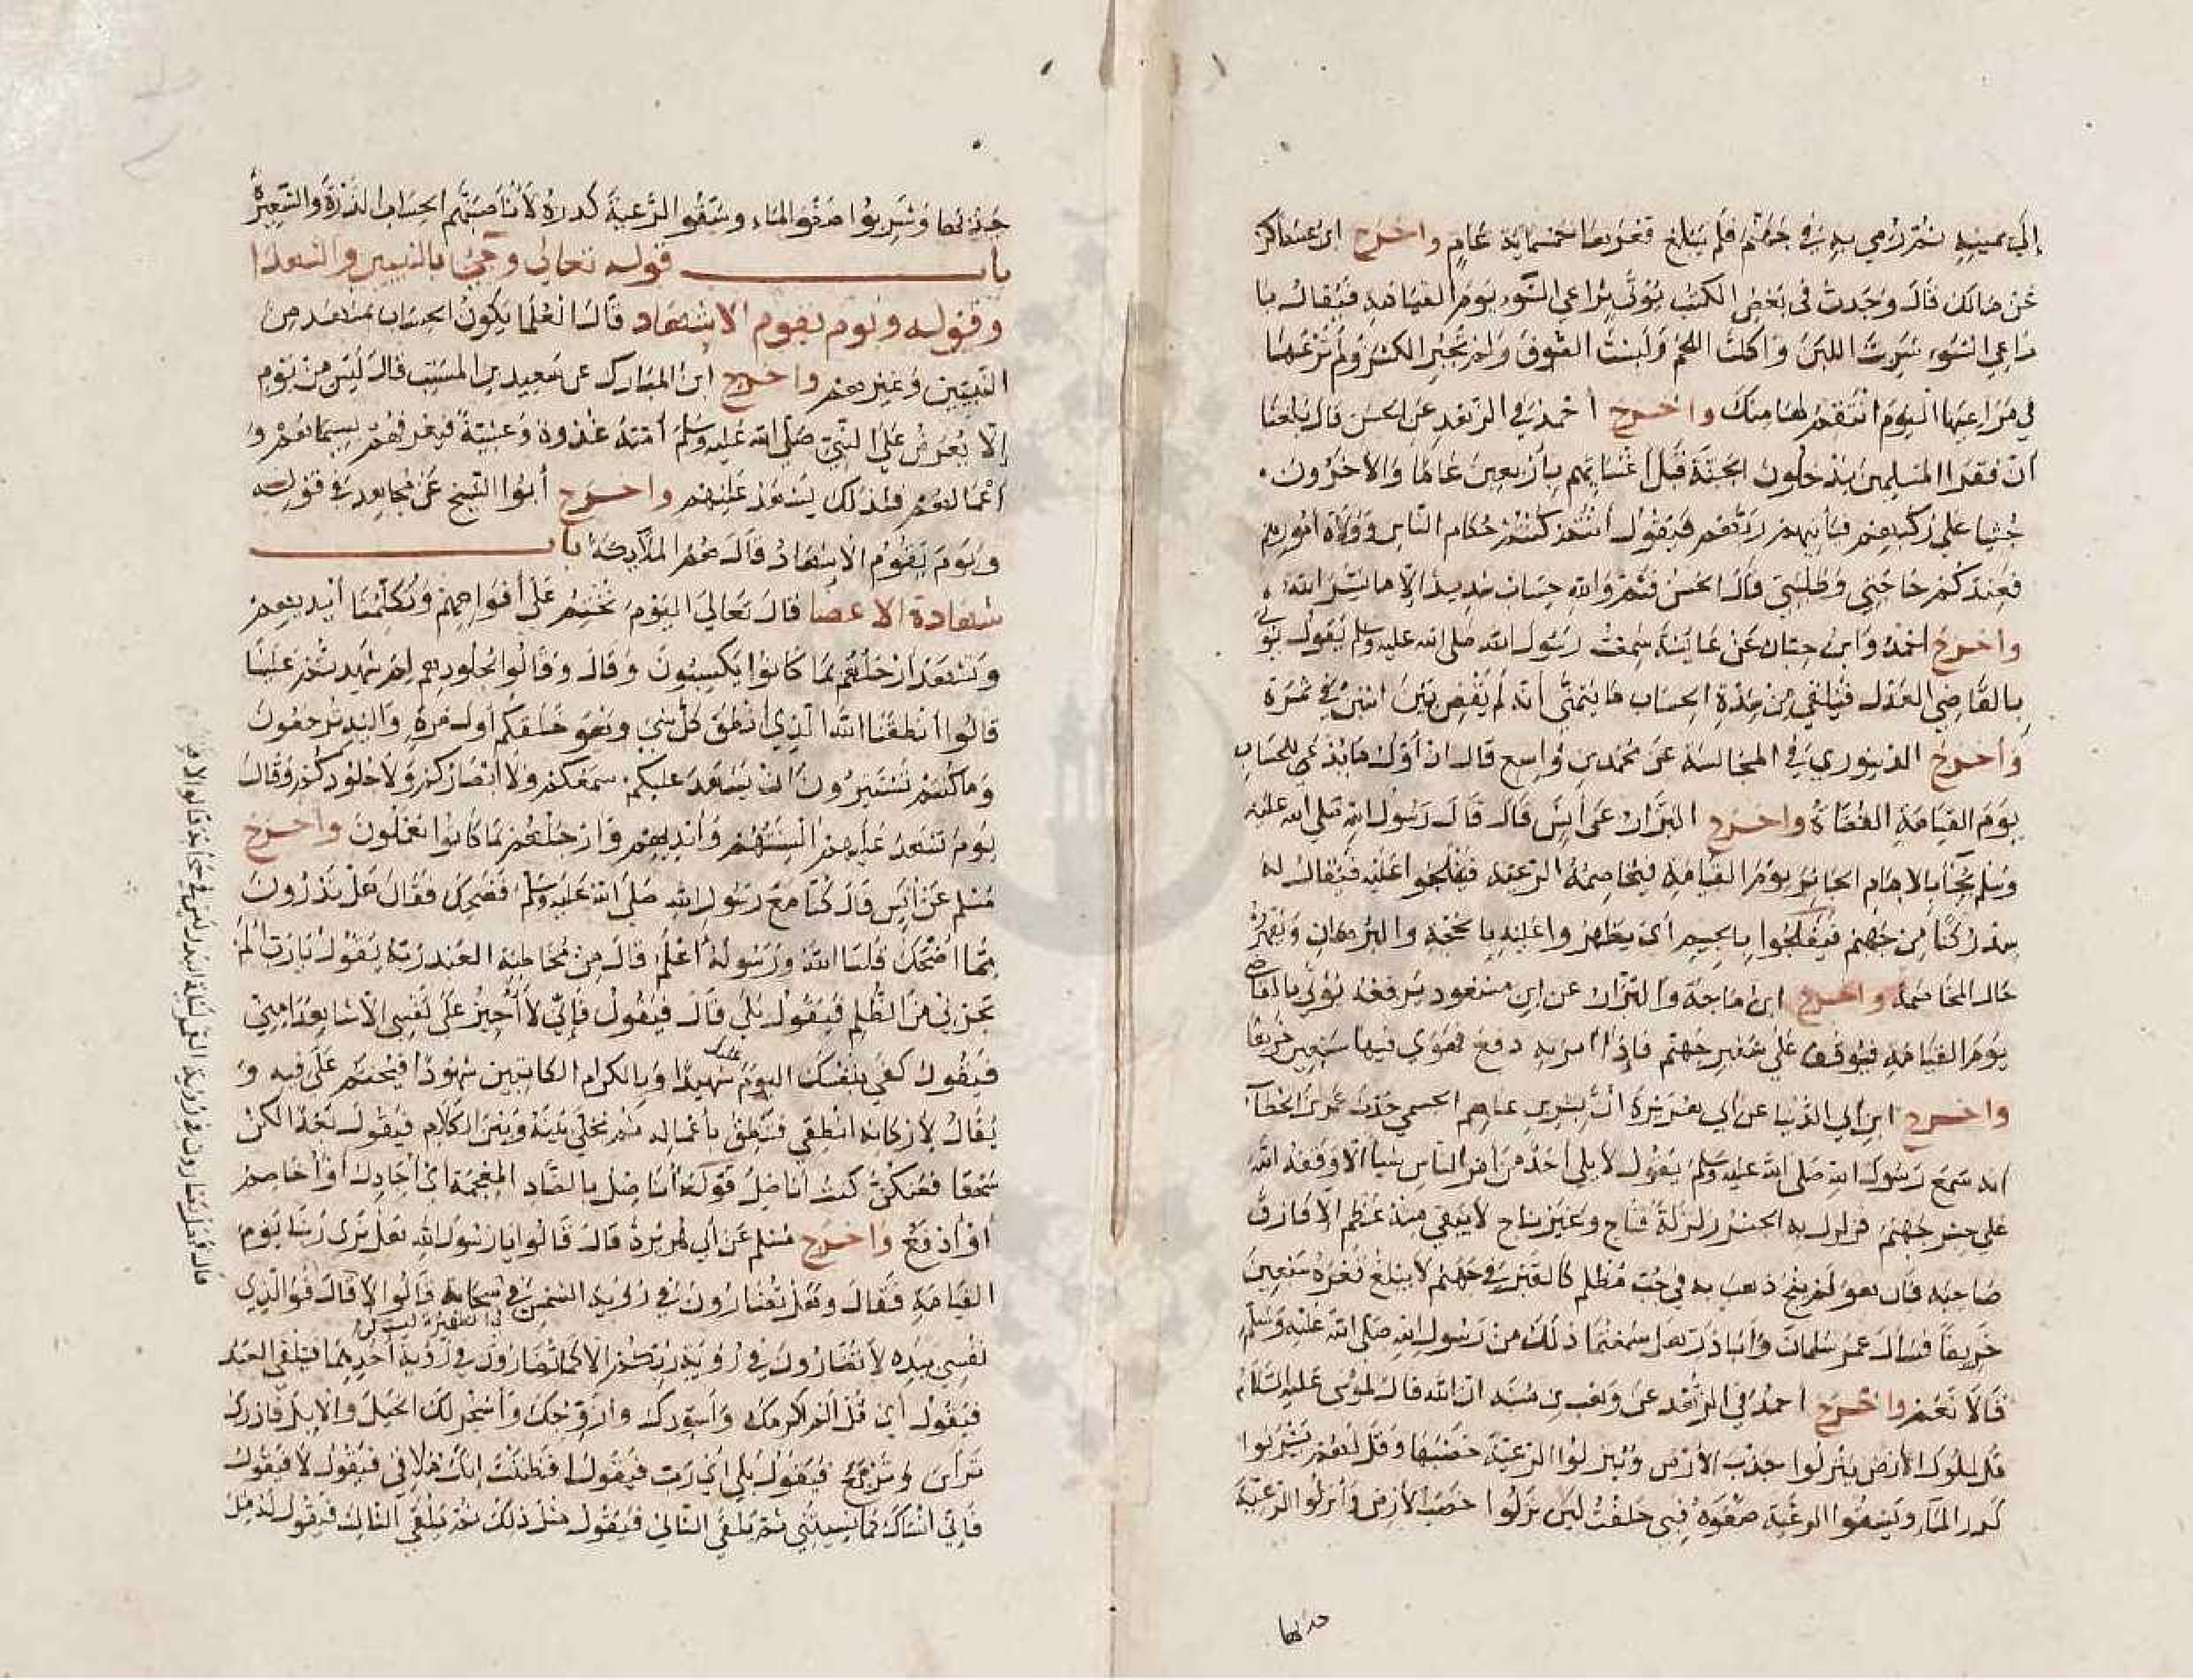 إلى يمينه ثم رمي به في جهنم فلم يبلغ قعرها خمسماية عام واخرج ابن عساكر
عن مالك قال وجدت في بعض الكتب يؤتى براعي السوء يوم القيامة فيقال يا
راعي السوء شربت اللبن واكلت اللحم ولبست الصوف ولم تجبر الكسر ولم ترعها
في مراعيها اليوم انتقم لها منك واخرج أحمد في الزهد عن الحسن قال بلغنا
ان فقرا المسلمين يدخلون الجنة قبل اغنيايهم باربعين عاما والاخرون
جثيا على ركبهم فياتيهم ربهم فيقول انتم كنتم حكام الناس وولاة امورهم
فعندكم حاجتي وطلبتي قال الحسن فثم والله حساب شديد الا ما يسر الله
واخرج احمد وابن حبان عن عايشة سمعت رسول الله صلى الله عليه وسلم يقول يؤتى
بالقاضي العدل فيلقى من شدة الحساب ما يتمنى أنه لم يقض بين اثنين في تمرة
واخرج الدينوري في المجالسة عن محمد بن واسع قال ان أول ما يدعى للحساب
يوم القيامة القضاة واخرج البزار عن أنس قال قال رسول الله صلى الله عليه
وسلم يجآ بالامام الجائر يوم القيامة فيخاصمه الرعية فيفلجوا عليه فيقال له
سد ركنا من جهنم فيفلجوا بالجيم أي يظهروا عليه بالحجة والبرهان ويقهره
حال المخاصمة واخرج ابن ماجة والبزار عن ابن مسعود يرفعه يؤتى بالقاضي
يوم القيامة فيوقف على شفير جهنم فإذا امر به دفع فهوى فيها سبعين خريفا
واخرج ابن ابي الدنيا عن ابي هريرة أن بشر بن عاصم الجشمي حدث عمر بن الخطاب
أنه سمع رسول الله صلى الله عليه وسلم يقول لا يلي أحد من امر الناس شيا الا وقفه الله
على جسر جهنم فزلزل به الجسر زلزلة فناج وغير ناج لا يبقى منه عظم الا فارق
صاحبه فان هو لم ينج ذهب به في جب مظلم كالقبر في جهنم لا يبلغ قعره سبعين
خريفا فسأل عمر سلمان وأبا ذر هل سمعتما ذلك من رسول الله صلى الله عليه وسلم
قالا نعم واخرج أحمد في الزهد عن وهب بن منبه ان الله قال لموسى عليه السلام
قل لملوك الأرض ينزلوا جدب الأرض وينزلوا الرعية خصبها وقل لهم يشربوا
كدر المآ ويسقوا الرعية صفوه فبي حلفت لين نزلوا خصب الأرض وأنزلوا الرعية
جدبها
جدبها وشربوا صفو الماء وسقوا الرعية كدره لأناصبنهم الحساب الذرة والشعيرة
باب قوله تعالى وجيء بالنبيين والشهدا
وقوله ويوم يقوم الاشهاد قال العلما يكون الحساب بمشهد من
النبيين وغيرهم واخرج ابن المبارك عن سعيد بن المسيب قال ليس من يوم
إلا يعرض على النبي صلى الله عليه وسلم أمته غدوة وعشية فيعرفهم بسيماهم و
أعمالهم فلذلك يشهد عليهم واخرج أبوا الشيخ عن مجاهد في قوله
ويوم يقوم الاشهاد قال هم الملايكة باب
شهادة الاعضا قال تعالى اليوم نختم على أفواههم وتكلمنا أيديهم
وتشهد ارجلهم بما كانوا يكسبون وقال وقالوا لجلودهم لم شهدتم علينا
قالوا انطقنا الله الذي أنطق كل شي وهو خلقكم أول مرة واليه ترجعون
وما كنتم تستترون أن يشهد عليكم سمعكم ولا أبصاركم ولا جلودكم وقال
يوم تشهد عليهم السنتهم وأيديهم وارجلهم بما كانوا يعملون واخرج
مسلم عن أنس قال كنا مع رسول الله صلى الله عليه وسلم فضحك فقال هل تدرون
مما اضحك قلنا الله ورسوله أعلم قال من مخاطبة العبد ربه يقول يا رب الم
تجرني من الظلم فيقول بلى قال فيقول فإني لا أجيز على نفسي الا شاهدا مني
فيقول كفى بنفسك اليوم عليك شهيدا وبالكرام الكاتبين شهودا فيختم على فيه و
يقال لأركانه انطقي فتنطق بأعماله ثم يخلى بينه وبين الكلام فيقول بعدا لكن
سحقا فعنكن كنت أناضل قوله أناضل بالضاد المعجمة اي أجادل أو أخاصم
أو أدفع واخرج مسلم عن أبي هريرة قال قالوا يا رسول الله هل نرى ربنا يوم
القيامة فقال وهل تضارون في رؤية الشمس في الظهيرة ليست في سحابة قالوا لا قال فوالذي
نفسي بيده لا تضارون في رؤية ربكم الا كما تضارون في رؤية أحدهما فيلقى العبد
فيقول أي فل ألم اكرمك وأسودك وازوجك وأسخر لك الخيل والإبل واذرك
ترأس وتربع فيقول بلى أي رب فيقول افظننت إنك ملاقي فيقول لا فيقول
فإني أنساك كما نسيتني ثم يلقى الثاني فيقول مثل ذلك ثم يلقى الثالث فيقول له مثل
قال فهل تضارون في رؤية القمر ليلة البدر ليس في سحابة قالوا لا